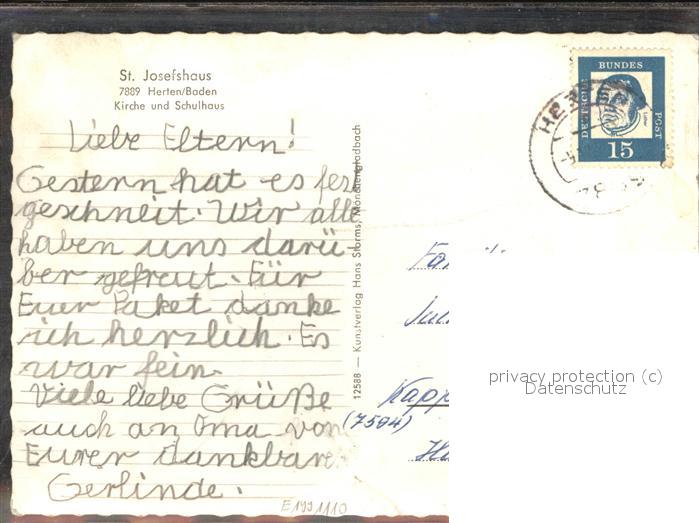 St. Josefshaus
7889 Herten/Baden
Kirche und Schulhaus
Liebe Eltern!
Gestern hat es fest
geschneit. Wir alle
haben uns darü-
ber gefreut. Für
Euer Paket danke
ich herzlich. Es
war fein.
Viele liebe Grüße
auch an Oma von
Eurer dankbare
Gerlinde.
12588 — Kunstverlag Hans Storms, Mönchengladbach
DEUTSCHE
BUNDES
POST
Luther
15
Kapp
(7594)
privacy protection (c)
Datenschutz
E1991110